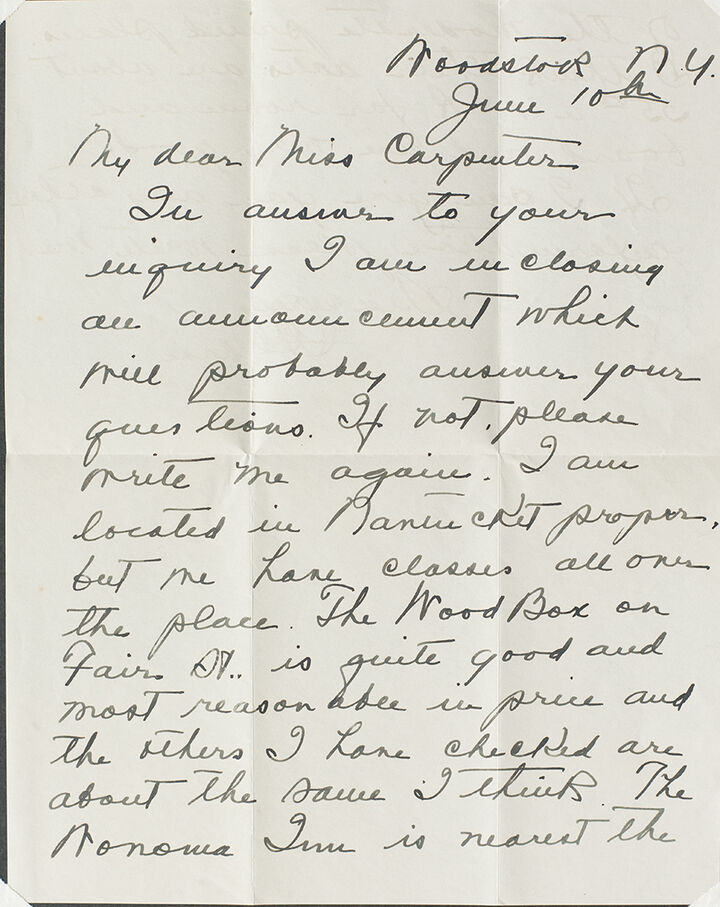 Woodstock N.Y.
June 10th
My dear Miss Carpenter
In answer to your
inquiry I am inclosing
an announcement which
will probably answer your
questions. If not, please
write me again. I am
located in Nantucket proper,
but we have classes all over
the place. The Wood Box on
Fair St. is quite good and
most reasonable in price and
the others I have checked are
about the same I think. The
Wonoma Inn is nearest the